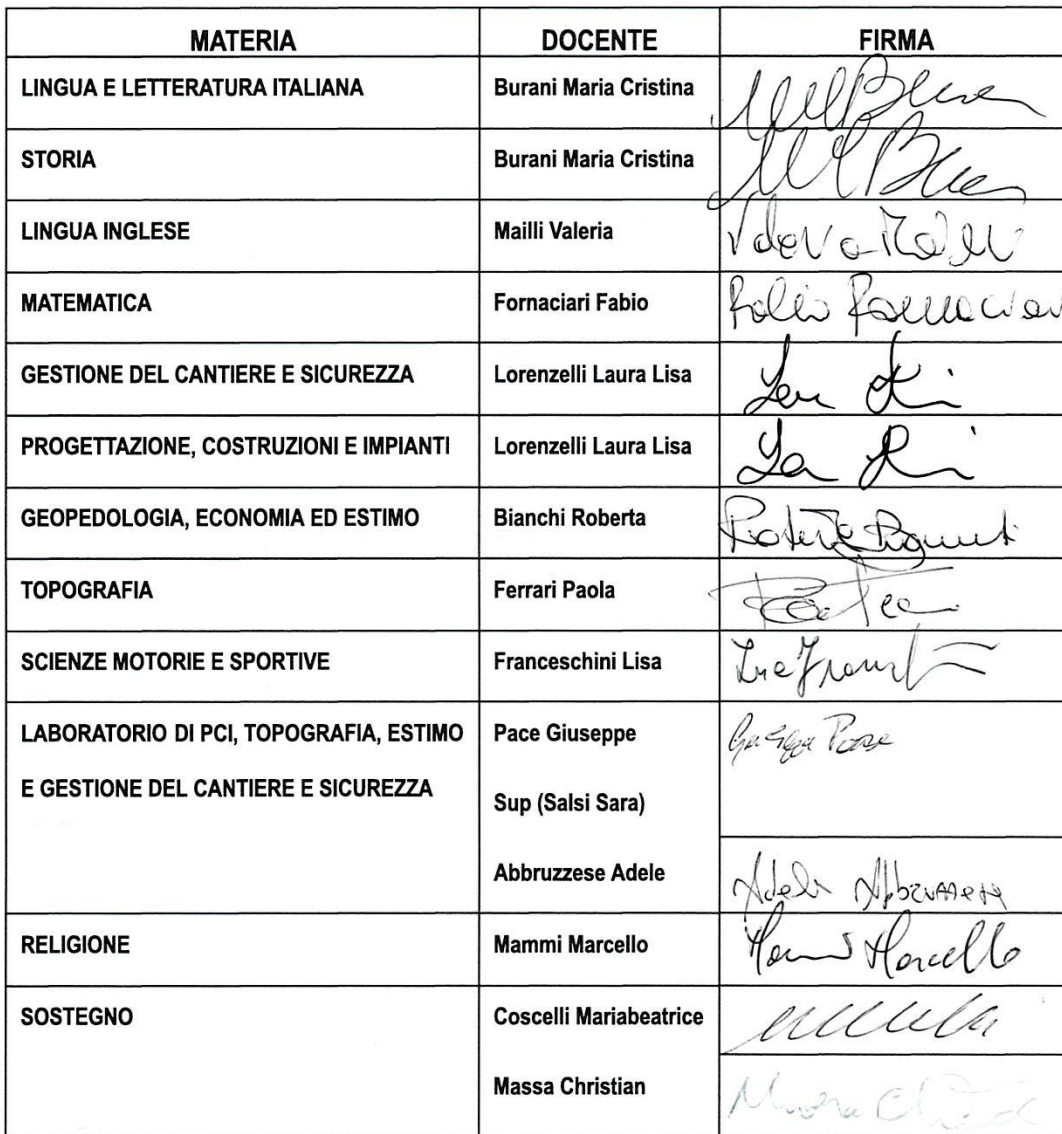 MATERIA DOCENTE FIRMA
LINGUA E LETTERATURA ITALIANA Burani Maria Cristina
STORIA Burani Maria Cristina
LINGUA INGLESE Mailli Valeria
MATEMATICA Fornaciari Fabio
GESTIONE DEL CANTIERE E SICUREZZA Lorenzelli Laura Lisa
PROGETTAZIONE, COSTRUZIONI E IMPIANTI Lorenzelli Laura Lisa
GEOPEDOLOGIA, ECONOMIA ED ESTIMO Bianchi Roberta
TOPOGRAFIA Ferrari Paola
SCIENZE MOTORIE E SPORTIVE Franceschini Lisa
LABORATORIO DI PCI, TOPOGRAFIA, ESTIMO Pace Giuseppe Giuseppe Pace
E GESTIONE DEL CANTIERE E SICUREZZA Sup (Salsi Sara)
Abbruzzese Adele Adele Abbruzzese
RELIGIONE Mammi Marcello Marcello
SOSTEGNO Coscelli Mariabeatrice
Massa Christian